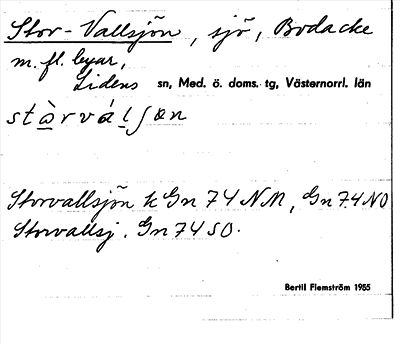 Stor-Vallsjön, sjö, Bodacke
m. fl. byar,
Lidens sn, Med. ö. doms. tg, Västernorrl. län
stòrválʃøn
Storvallsjön k Gn 74 NM, Gn 74 NO
Storvallsj. Gn 74 SO.
Bertil Flemström 1955